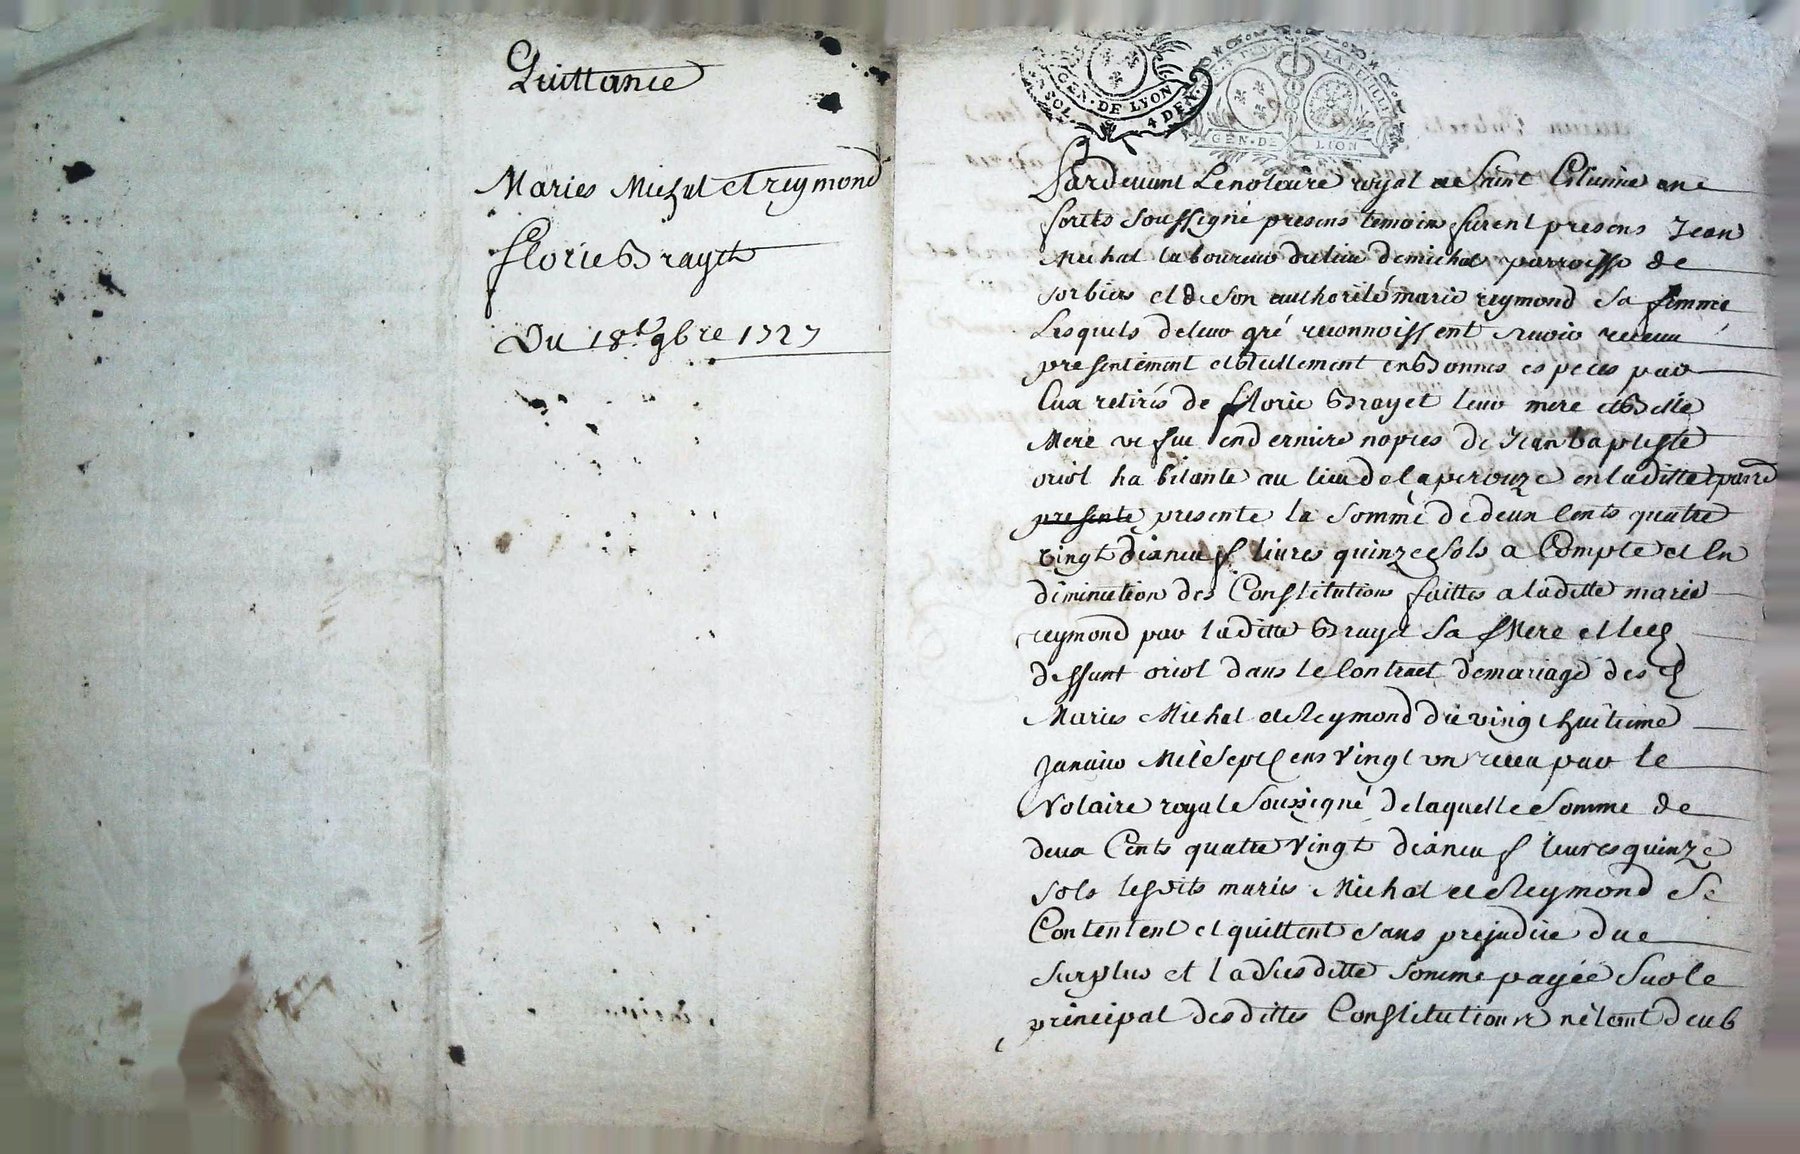 Quittance
Maries Michal et reymond
florie Brayet
Du 18.e 9bre 1727
GEN. DE LYON
4 DEN.
LA FEUILLE
GEN. DE LION
Pardevant Le notaire royal de Saint Etienne en
forets soussigné presens temoins furent presens Jean
Michal laboureur du lieu de michal parroisse de
sorbiers et de son authorité marie reymond sa femme
Lesquels de leur gré reconnoissent avoir receu
presentement et reellement en Bonnes especes par
Eux retirés de florie Brayet leur mere et Belle
Mere vefue en derniere nopces de Jean baptiste
oriol habitante au lieu de la perouze en laditte parr.
presente presente la somme de deux Cents quatre
vingt dixneuf livres quinze sols a Compte et En
diminution des Constitutions faittes a laditte marie
reymond par laditte Brayet sa Mere et led
deffunt oriol dans le Contract de mariage des d
Maries Michal et Reymond du vingt huitieme
Janvier Mil Sept Cens vingt un receu par le
Notaire royal Soussigné de laquelle somme de
deux Cents quatre vingt dixneuf livres quinze
sols lesdits maries Michal et Reymond Se
Contentent et quittent sans prejudice due
surplus et la susditte somme payée sur le
principal desdittes Constitutions n'etant deub